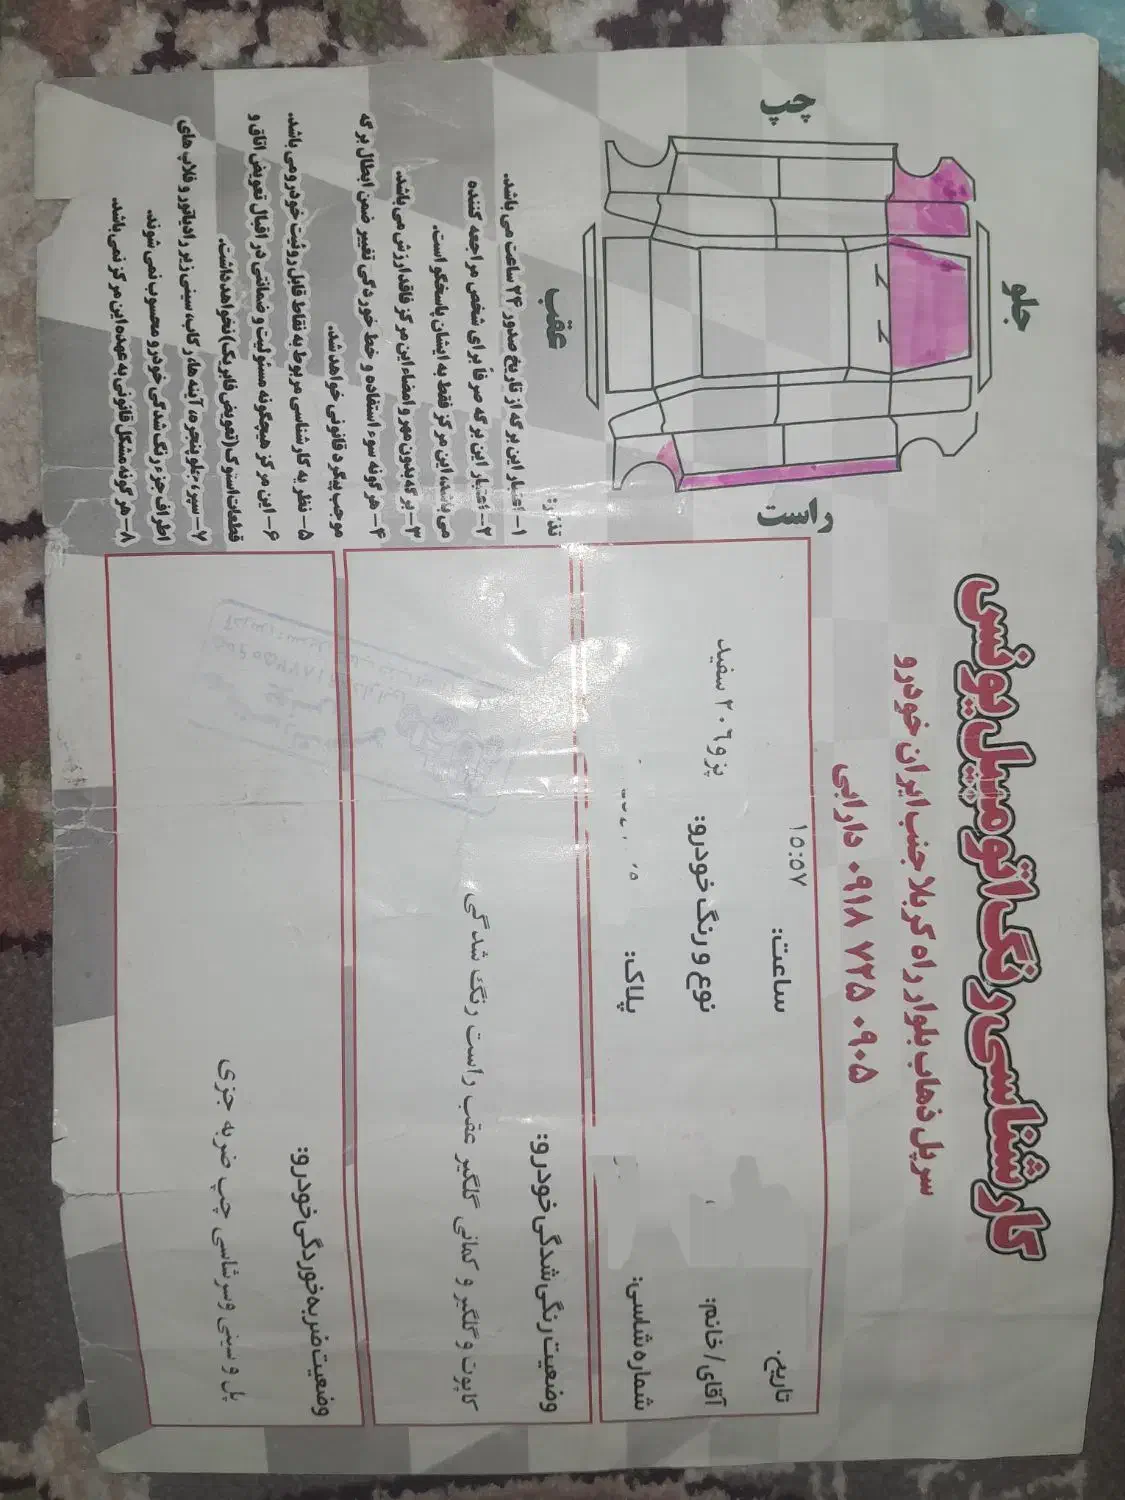 کارشناسی رنگ اتومبیل یونس
سرپل ذهاب بلوار راه کربلا جنب ایران خودرو
۰۹۱۸ ۷۲۵ ۰۹۰۵ دارابی
تاریخ:
ساعت: ۱۵:۵۷
آقای / خانم:
نوع و رنگ خودرو: پژو ۲۰۶ سفید
شماره شاسی:
پلاک:
وضعیت رنگ شدگی خودرو:
کاپوت و گلگیر و کمانی گلگیر عقب راست رنگ شدگی
وضعیت ضربه خوردگی خودرو:
پل و سینی و سرشاسی چپ ضربه جزی
جلو
چپ
راست
عقب
تذکر:
۱- اعتبار این برگه از تاریخ صدور ۲۴ ساعت می باشد.
۲- اعتبار این برگه صرفاً برای شخص مراجعه کننده
می باشد، این مرکز فقط به ایشان پاسخگو است.
۳- برگه بدون مهر و امضاء این مرکز فاقد ارزش می باشد.
۴- هر گونه سوء استفاده و خط خوردگی تغییر ضمن ابطال برگه
موجب پیگرد قانونی خواهد شد.
۵- نظریه کارشناسی مربوط به نقاط قابل روئیت خودرو می باشد.
۶- این مرکز هیچگونه مسئولیت و ضمانتی در اقبال تعویض اتاق و
قطعات استوک (تعویض فابریک) نخواهد داشت.
۷- سپر، جلو پنجره، آینه ها، رکاب، سینی زیر رادیاتور و قلاب های
اطراف جزء رنگ شدگی خودرو محسوب نمی شوند.
۸- هر گونه مشکل قانونی به عهده این مرکز نمی باشد.